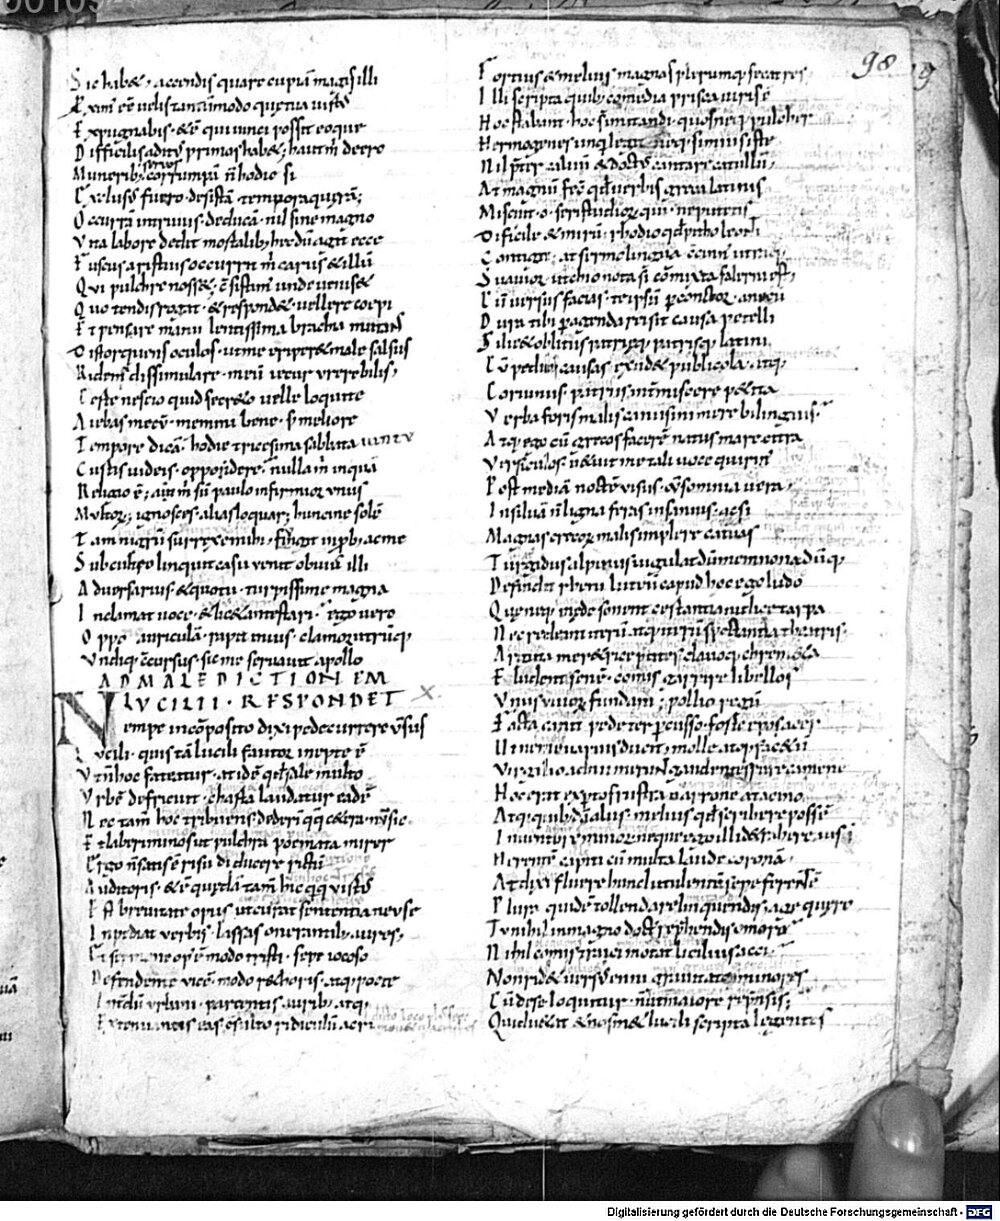 Sic habet, accendis quare cupiā magis illi
Proximꝰ eē uelis tantūmodo quę tua uirtꝰ
Expugnabis & ē qui uinci possit eoque
Difficilis aditꝰ primos hab& haut m̄ deero
Muneribꝫ seruos corrumpā n̄ hodie si
Exclusꝰ fuero desistā tempora quęrā;
Occurrā in triuiis deducā nil sine magno
Vita labore dedit mortalibꝫ hęc dū agit ecce
Fuscus aristius occurrit m̄ carus & illū
Qui pulchre noss& c̄sistim̄ unde uenis &
Quo tendis rogat & respond& uellere coepi
Et pensare manu lentissima brachia nutans
Distorquens oculos ut me eriper& male salsus
Ridens dissimulare meū iecur urere bilis,
Certe nescio quid secreto uelle loqui te
Aiebas mecū memini bene s; meliore
Tempore dicā hodie tricesima sabbata
Curtis iudeis oppedere nulla m̄ inquā
Religio ē; at m̄ sū paulo infirmior unus
Multoꝝ; ignosces alias loquar; huncine solē
Tam nigrū surrexe mihi fugit inprobꝰ ac me
Sub cultro linquit casu uenit obuiꝰ illi
Aduersarius & quo tu turpissime magna
Inclamat uoce & lic& antestari ego uero
Oppo auriculā rapit in ius clamor utrimq;
Vndiq; c̄cursus sic me seruauit apollo
AD MALEDICTIONEM
LVCILII RESPONDET X
Nempe incōposito dixi pede currere uersus
Lucili quis tā lucili fautor inepte ē
Vt n̄ hoc fateatur at idē qd sale multo
Vrbē defricuit charta laudatur eadē
Nec tam̄ hoc tribuens dederī qq; c&era nā sic
Et laberi mimos ut pulchra poemata mirer
Ergo n̄ satis ē risu diducere rictū
Auditoris & ē quędā tam̄ hic qq; uirtꝰ
Est breuitate opus ut currat sententia neu se
Inpediat uerbis lassas onerantibꝫ aures,
Et sermone opꝰ ē modo tristi sepe iocoso
Defendente uicē modo r&horis atq; poete
Interdū urbani parcentis uiribꝫ atq;
Extenuantis eas c̄sulto ridiculū acri
98
Fortius & melius magnas plerumq; secat res
Illi scripta quibꝫ comędia prisca uiris ē
Hoc stabant hoc s̄ imitandi quos neq; pulcher
Hermogenes unq̄ legit neq; simius iste
Nil pręter caluū & doctꝰ cantare catullū,
At magnū fec̄ qd uerbis greca latinis
Miscuit o seri studioꝝ quin& putetis
Difficile & mirū rhodio qd pitholeonti
Contigit at sermo lingua c̄cinnꝰ utraq;
Suauior ut chio nota si cōmixta falerni est,
Cū uersus facias te ipsū percontor an cū
Dura tibi peragenda rei sit causa petelli
Scilic& oblitus patrięq; patrisq; latini
Cū pedius causas exud& publicola atq;
Coruinus patriis intmiscere p&ita
Verba foris malis canusini more bilinguis
Atq; ego cū grecos facerē natus mare citra
Versiculos u&uit me tali uoce quirinꝰ
Post mediā noctē uisus cū somnia uera,
In siluā n̄ ligna feras insanius ac si
Magnas grecoꝝ malis implere cateruas
Turgidus alpinus iugulat dū memnona dūq;
Defingit rheni luteū caput hęc ego ludo
Quę neq; in ęde sonent certantia iudice tarpa
Nec redeant iterū atq; iterū spectanda theatris,
Arguta meretrice potes dauoq; chrem&a
Eludente senē comis garrire libellos
Vnus uiuoꝝ fundani, pollio regū
Facta canit pede ter percusso forte epos acer
Vt nemo uarius ducit, molle atq; fac&ū
Virgilio adnuerunt gaudentes rure camene
Hoc erat experto frustra uarrone atacino
Atq; quibꝫdā aliis melius qd scribere possē
Inuentore minor neque ego illi d&rahere ausī
Herentē capiti cū multa laude coronā,
At dixi fluere hunc lutulentū sepe ferentē
Plura quidē tollenda relinquendis age quęro
Tu nihil in magno doctꝰ reprehendis omero
Nihil comis tragici mutat lucilius acci
Non rid& uersus enni grauitate minores
Cū de se loquitur n̄ ut maiore repensis;
Quid u&at & nosm& lucili scripta legentes